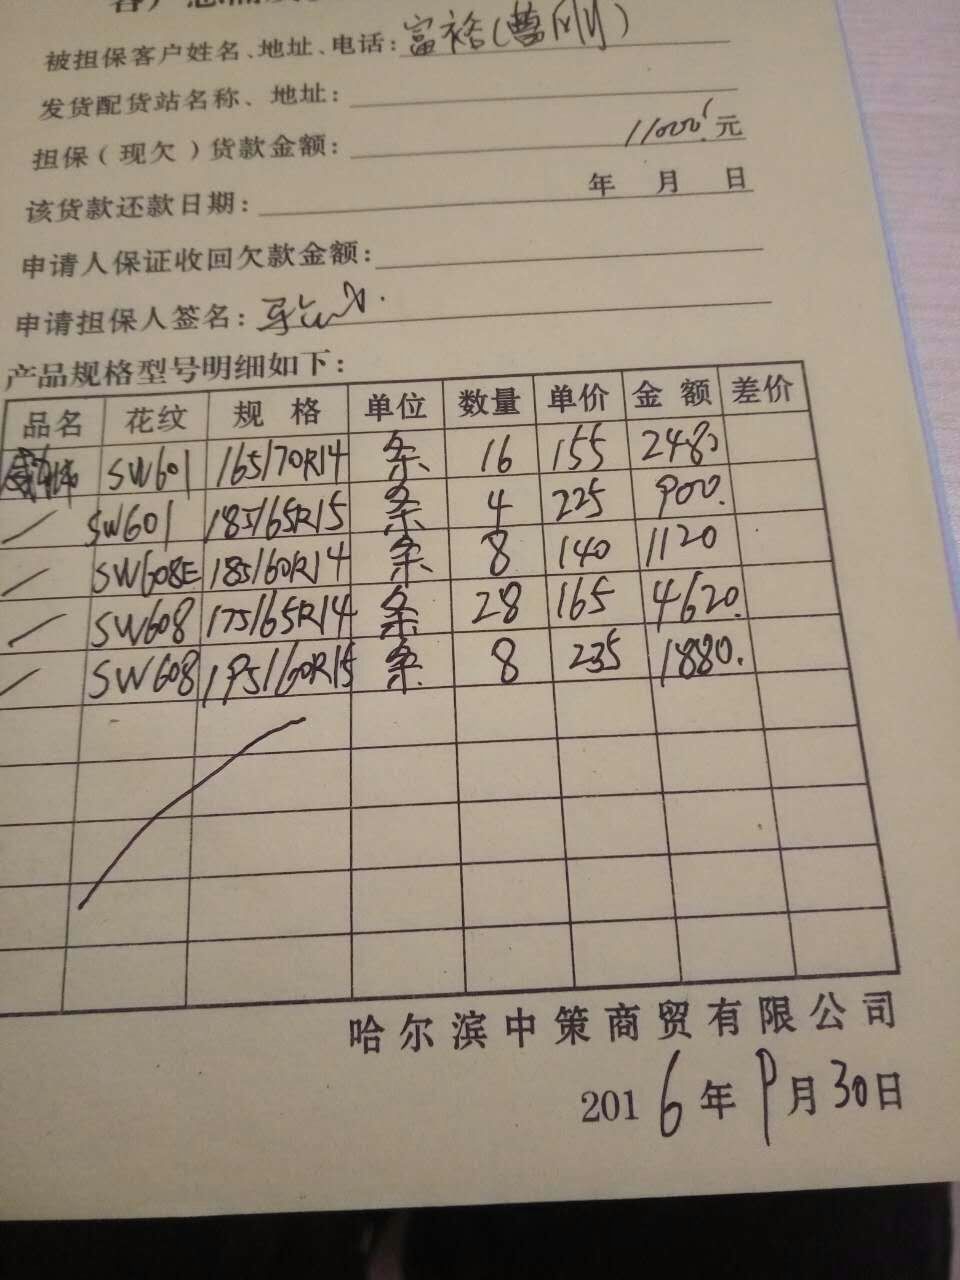 被担保客户姓名、地址、电话：富裕（曹刚）
发货配货站名称、地址：
担保（现欠）货款金额：11000元
该货款还款日期： 年 月 日
申请人保证收回欠款金额：
申请担保人签名：
产品规格型号明细如下：
品名 花纹 规格 单位 数量 单价 金额 差价
SW601 165/70R14 条 16 155 2480
SW601 185/65R15 条 4 225 900.
SW608E 185/60R14 条 8 140 1120
SW608 175/65R14 条 28 165 4620.
SW608 195/60R15 条 8 235 1880.
哈尔滨中策商贸有限公司
2016年9月30日